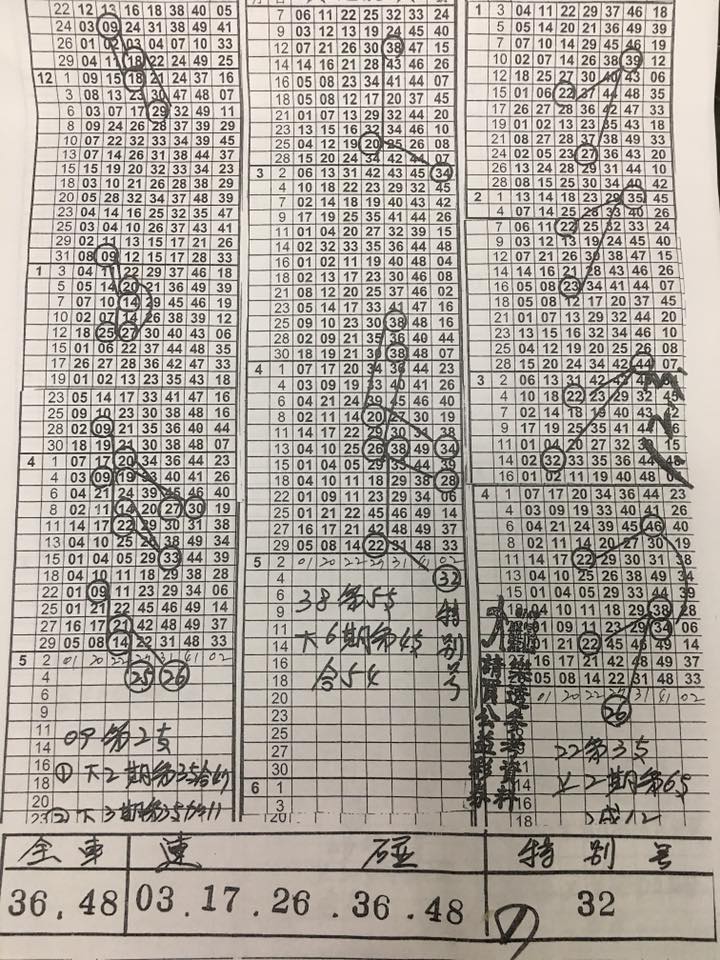 22 12 13 16 18 38 40 05
24 03 09 25 30 38 49 41
26 01 02 03 04 07 10 33
29 04 11 18 22 24 49 25
12 1 09 15 18 21 24 37 16
3 08 13 23 30 47 48 07
6 03 07 17 29 32 49 11
8 09 24 26 28 37 39 29
10 07 22 32 33 34 39 45
13 07 14 26 31 38 44 37
15 15 19 20 32 33 34 23
18 03 10 21 26 28 38 29
20 05 28 32 34 37 48 39
23 04 14 16 25 32 35 47
25 03 04 10 26 37 43 41
29 02 11 13 15 17 21 26
31 08 09 12 15 17 28 33
1 3 04 11 22 29 37 46 18
5 05 14 20 21 36 49 39
7 07 10 14 29 45 46 19
10 02 07 14 26 38 39 12
12 18 25 27 30 40 43 06
15 01 06 22 37 44 48 35
17 26 27 28 36 42 47 33
19 01 02 13 23 35 43 18
23 05 14 17 33 41 47 16
25 09 10 23 30 38 48 16
28 02 09 21 35 36 40 44
30 18 19 21 30 38 48 07
4 1 07 17 20 34 36 44 23
4 03 09 19 33 40 41 26
6 04 21 24 39 45 46 40
8 02 11 14 20 27 30 19
11 14 17 22 29 30 31 38
13 04 10 25 26 38 49 34
15 01 04 05 29 33 44 39
18 04 10 11 18 29 38 28
22 01 09 11 23 29 34 06
25 01 21 22 45 46 49 14
27 16 17 21 42 48 49 37
29 05 08 14 22 31 48 33
5 2 01 20 22 29 31 41 02
4 25 26
11
14
16
18
20
23
09第2支
① 下2期第3支合
② 下3期第3支
7 06 11 22 25 32 33 24
9 03 12 13 19 24 45 40
12 07 21 26 30 38 47 15
14 14 16 21 28 43 46 26
16 05 08 23 34 41 44 07
18 05 08 12 17 20 37 45
21 01 07 13 29 32 44 20
23 13 15 16 32 34 46 10
25 04 12 19 20 25 26 08
28 15 20 24 34 42 44 07
3 2 06 13 31 42 43 45 34
4 10 18 22 23 29 32 45
7 02 14 18 19 40 43 42
9 17 19 25 35 41 44 26
11 01 04 20 27 32 39 15
14 02 32 33 35 36 44 48
16 01 02 11 19 40 48 04
18 02 13 17 23 30 46 08
21 08 12 20 25 37 46 02
23 05 14 17 33 41 47 16
25 09 10 23 30 38 48 16
28 02 09 21 35 36 40 44
30 18 19 21 30 38 48 07
4 1 07 17 20 34 36 44 23
4 03 09 19 33 40 41 26
6 04 21 24 39 45 46 40
8 02 11 14 20 27 30 19
11 14 17 22 29 30 31 38
13 04 10 25 26 38 49 34
15 01 04 05 29 33 44 39
18 04 10 11 18 29 38 28
22 01 09 11 23 29 34 06
25 01 21 22 45 46 49 14
27 16 17 21 42 48 49 37
29 05 08 14 22 31 48 33
5 2 01 20 22 29 31 41 02
4 32
7
9
11
14
16
18
20
23
25
27
30
6 1
3
38第5支
下6期第4支
合54
特別号
1 3 04 11 22 29 37 46 18
5 05 14 20 21 36 49 39
7 07 10 14 29 45 46 19
10 02 07 14 26 38 39 12
12 18 25 27 30 40 43 06
15 01 06 22 37 44 48 35
17 26 27 28 36 42 47 33
19 01 02 13 23 35 43 18
21 08 27 28 31 38 49 33
24 02 05 23 27 36 43 20
26 13 24 28 29 31 44 10
28 08 15 25 30 34 40 42
2 1 13 14 18 23 29 35 45
4 07 14 25 28 33 40 26
7 06 11 22 25 32 33 24
9 03 12 13 19 24 45 40
12 07 21 26 30 38 47 15
14 14 16 21 28 43 46 26
16 05 08 23 34 41 44 07
18 05 08 12 17 20 37 45
21 01 07 13 29 32 44 20
23 13 15 16 32 34 46 10
25 04 12 19 20 25 26 08
28 15 20 24 34 42 44 07
3 2 06 13 31 42 43 45 34
4 10 18 22 23 29 32 45
7 02 14 18 19 40 43 42
9 17 19 25 35 41 44 26
11 01 04 20 27 32 39 15
14 02 32 33 35 36 44 48
16 01 02 11 19 40 48 04
4 1 07 17 20 34 36 44 23
4 03 09 19 33 40 41 26
6 04 21 24 39 45 46 40
8 02 11 14 20 27 30 19
11 14 17 22 29 30 31 38
13 04 10 25 26 38 49 34
15 01 04 05 29 33 44 39
18 04 10 11 18 29 38 28
22 01 09 11 23 29 34 06
25 01 21 22 45 46 49 14
27 16 17 21 42 48 49 37
29 05 08 14 22 31 48 33
01 20 22 29 31 41 02
26
18
請買公益彩券
樂透參考資料
22第3支
下2期第6支
減12
全車 連 碰 特别号
36.48 03.17.26.36.48 ① 32